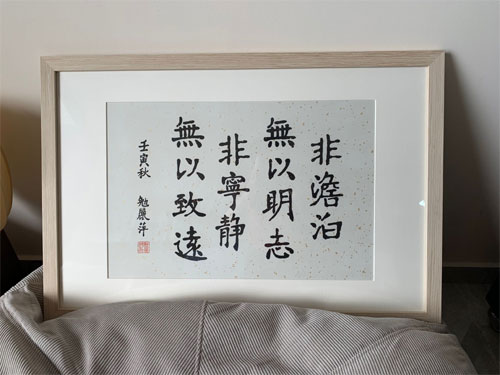 非澹泊
無以明志
非寧静
無以致遠
壬寅秋